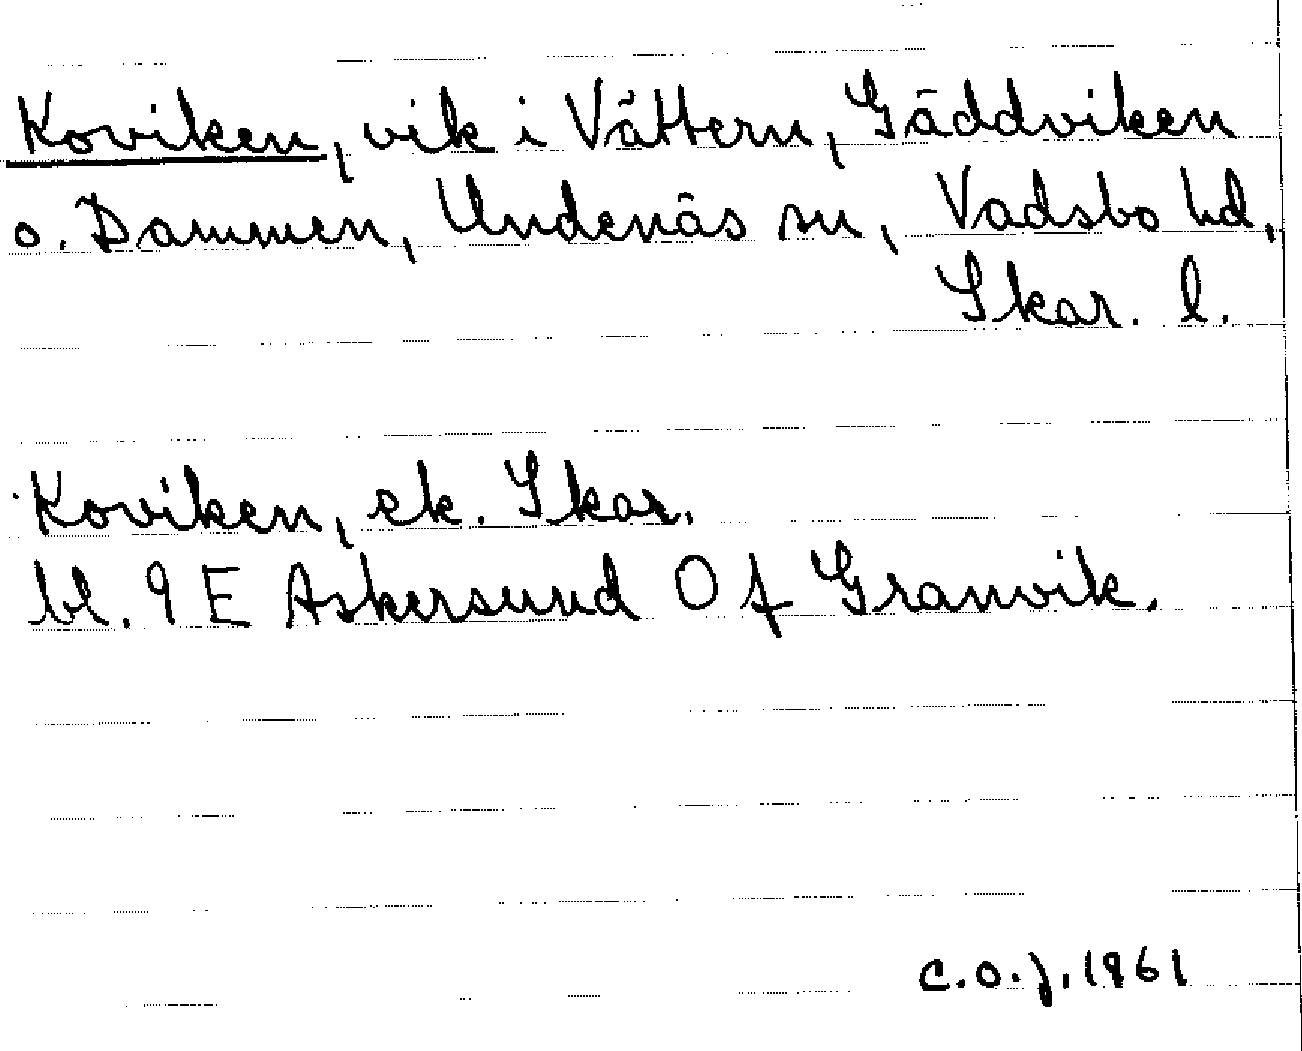 Koviken, vik i Vättern, Gäddviken
o. Dammen, Undenäs sn, Vadsbo hd,
Skar. l.
Koviken, ek. Skar.
bl. 9 E Askersund 0 f Granvik.
C.O.J. 1961